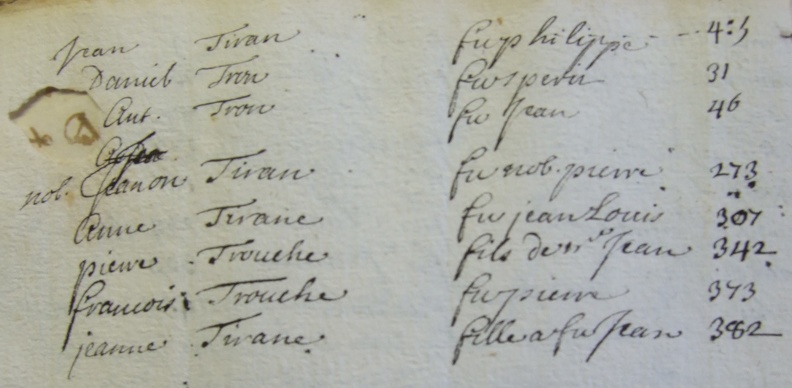 Jean Tiran fu philippe - 4:5
Daniel Tron fu sperit 31
Ant. Tron fu Jean 46
nob. Jeanon Tiran fu nob. pierre 273
Anne Tirane fu jean Louis 307
pierre Trouche fils de Jean 342
francois Trouche fu pierre 373
jeanne Tirane fille a fu Jean 382